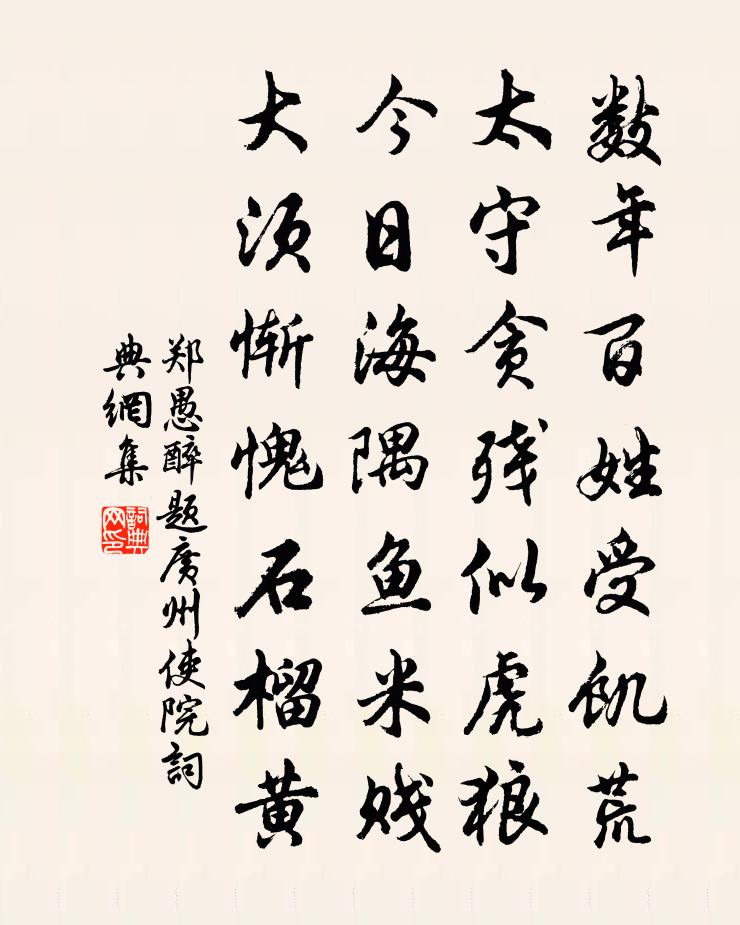 数年百姓受飢荒
太守贪残似虎狼
今日海隅鱼米贱
大须惭愧石榴黄
郑愚醉题廣州使院詞
典網集
詞典网印